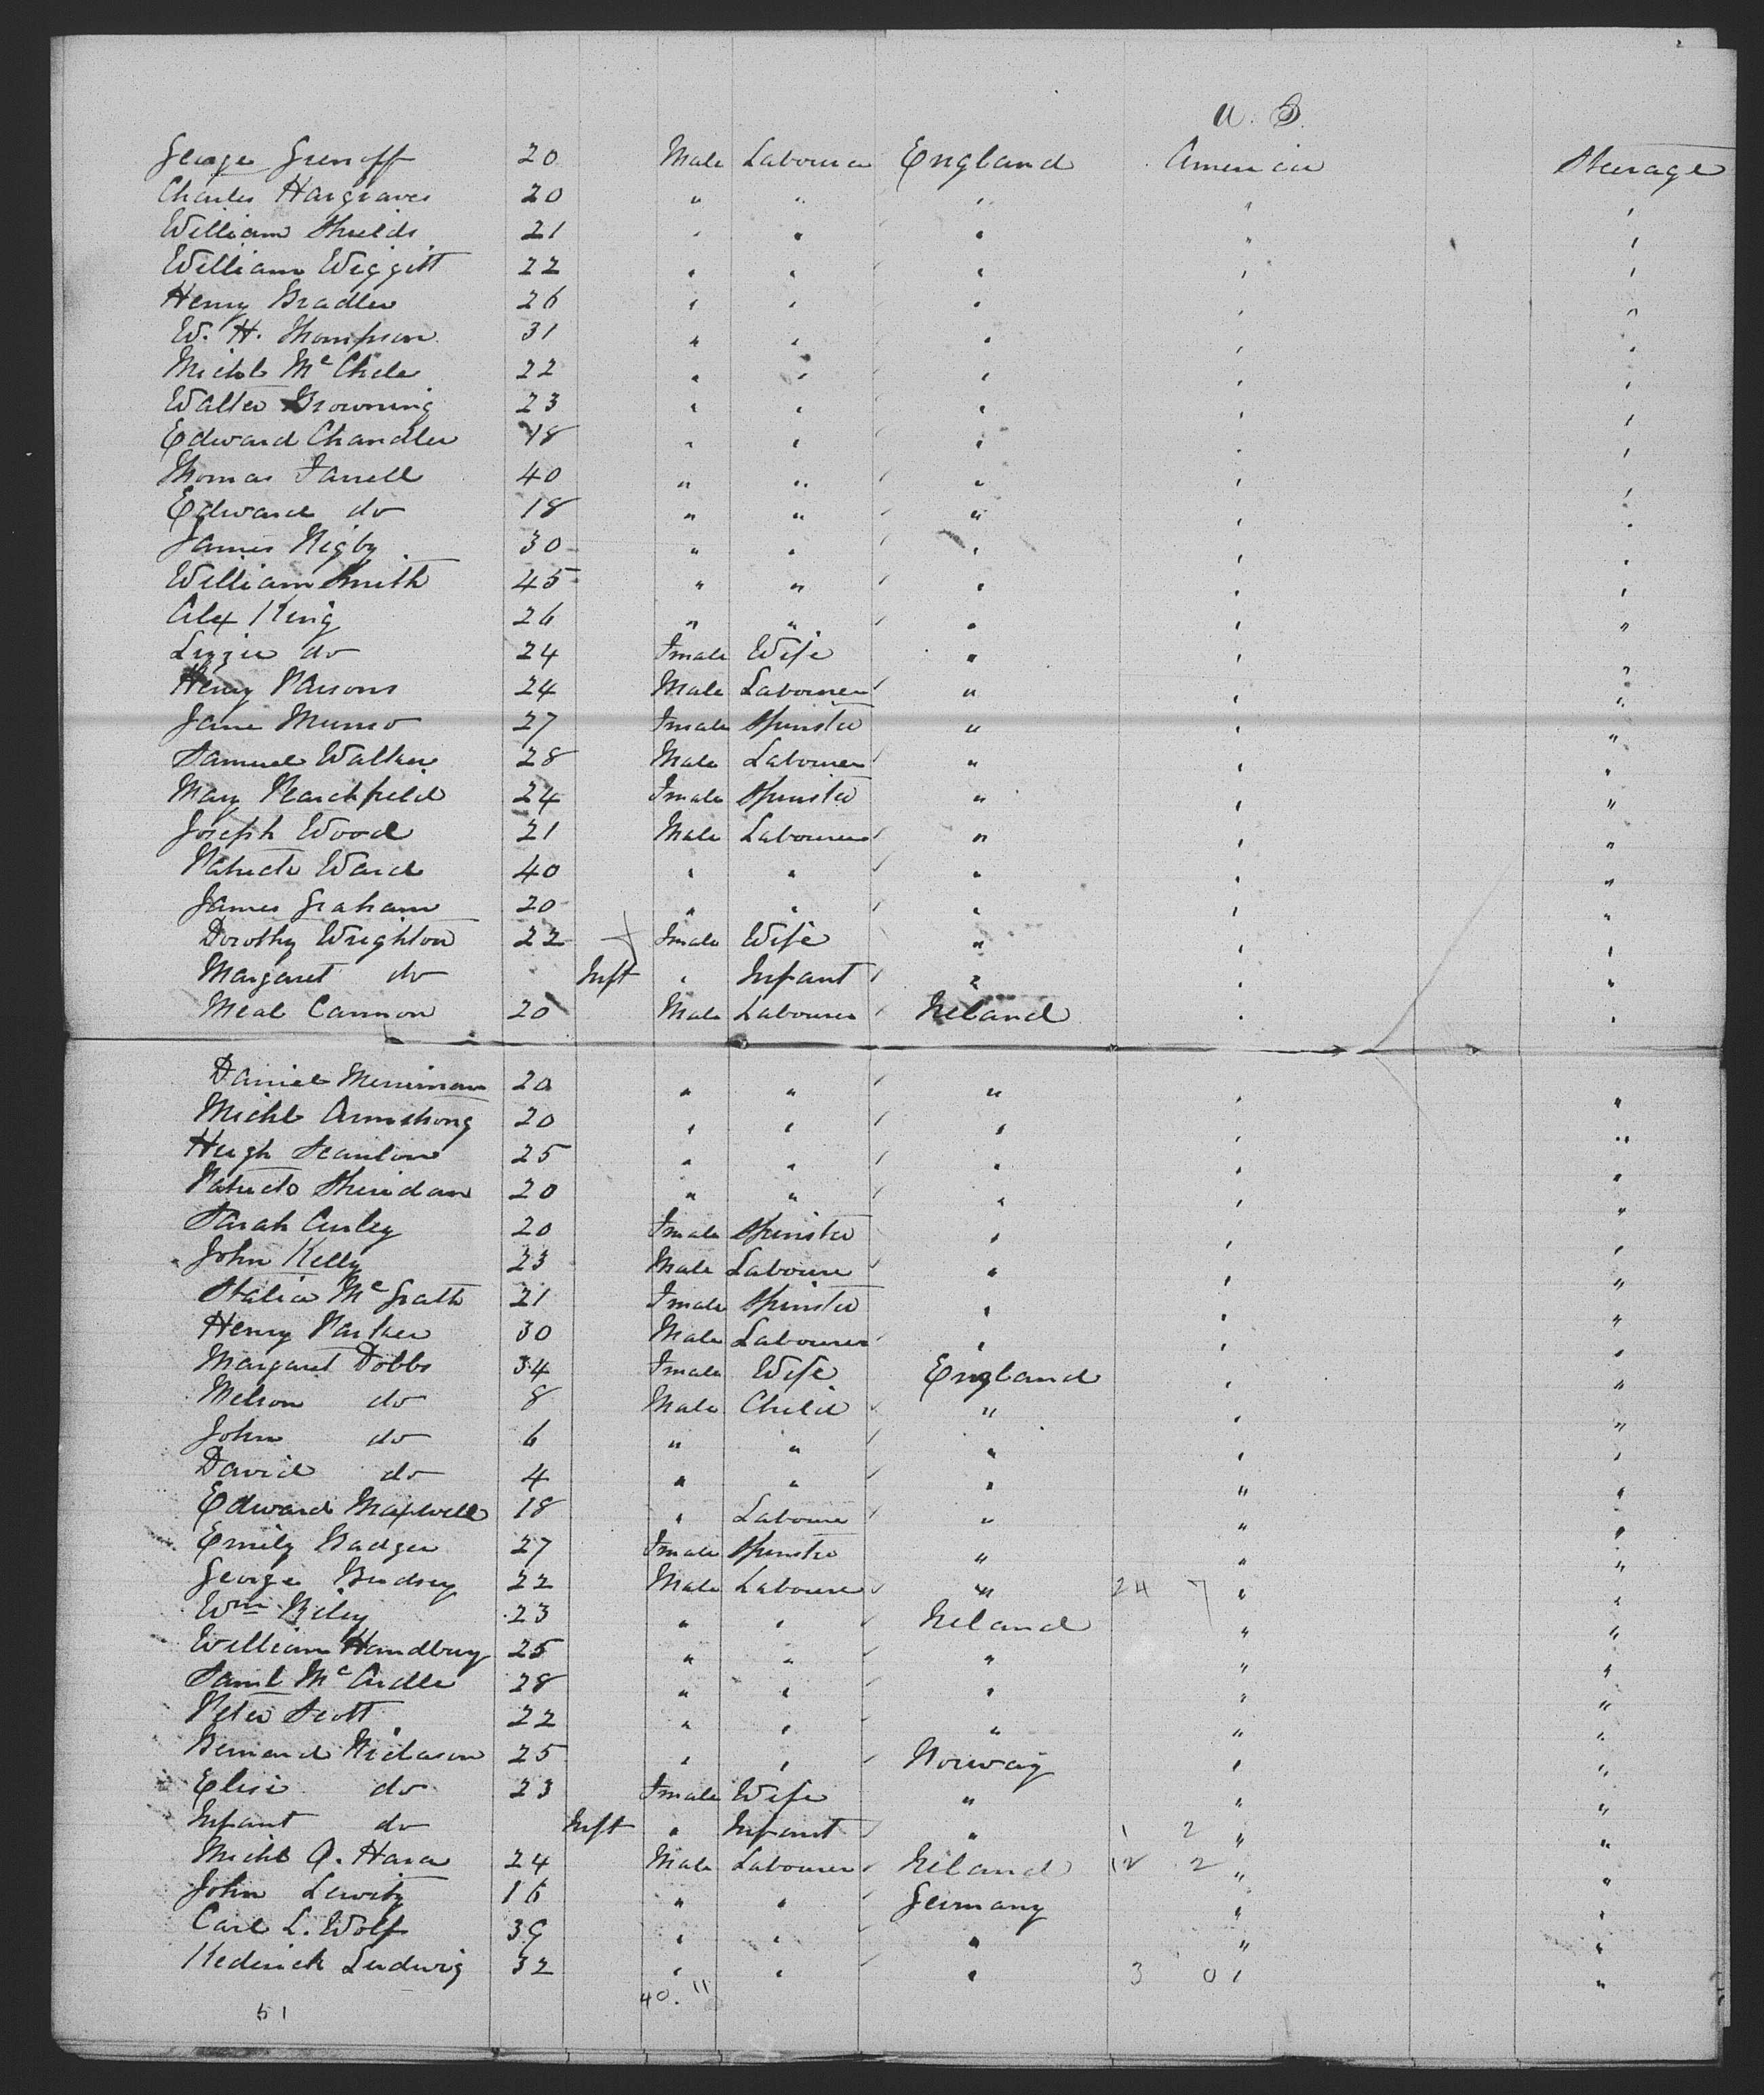 U. S.
George Grenoff 20 Male Labourer England America Steerage
Charles Hargraves 20 " " " " "
William Shields 21 " " " " "
William Wiggitt 22 " " " " "
Henry Bradler 26 " " " " "
W. H. Thompson 31 " " " " "
Michl Mc 22 " " " " "
Walter Browning 23 " " " " "
Edward Chandler 18 " " " " "
Thomas Farrell 40 " " " " "
Edward do 18 " " " " "
James Rigby 30 " " " " "
William Smith 45 " " " " "
Alex King 26 " " " " "
Lizzie do 24 Fmale Wife " " "
Henry Parsons 24 Male Labourer " " "
Jane Munro 27 Fmale Spinster " " "
Samuel Walker 28 Male Labourer " " "
Mary 24 Fmale Spinster " " "
Joseph Wood 21 Male Labourer " " "
Patrick Ward 40 " " " " "
James Graham 20 " " " " "
Dorothy Wrighton 22 Fmale Wife " " "
Margaret do Inft " Infant " " "
Neal Cannon 20 Male Labourer Ireland " "
Daniel Merriman 20 " " " " "
Michl Armstrong 20 " " " " "
Hugh Scanlon 25 " " " " "
Patrick Sheridan 20 " " " " "
Sarah Curley 20 Fmale Spinster " " "
John Kelly 23 Male Labourer " " "
Statia McGrath 21 Fmale Spinster " " "
Henry Parker 30 Male Labourer " " "
Margaret Dobbs 34 Fmale Wife England " "
Nelson do 8 Male Child " " "
John do 6 " " " " "
David do 4 " " " " "
Edward Maxwell 18 " Labourer " " "
Emily Badger 27 Fmale Spinster " " "
George 22 Male Labourer " 24 7 " "
Wm Riley 23 " " Ireland " "
William Handbury 25 " " " " "
Saml McArdle 28 " " " " "
Peter Scott 22 " " " " "
Bernard 25 " " Norway " "
Elise do 23 Fmale Wife " " "
Infant do Inft " Infant " 1 2 " "
Michl O. Hara 24 Male Labourer Ireland 12 2 " "
John Lewitz 16 " " Germany " "
Carl L. Wolf 39 " " " " "
Ludwig 32 " " " 3 0 " "
51 40. 11